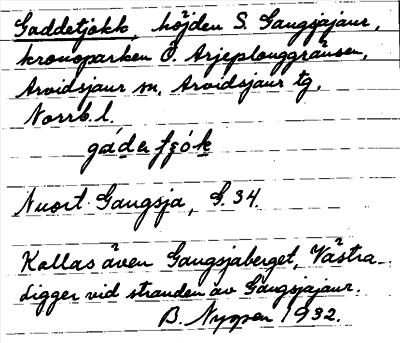 Gaddetjåkk, höjden S. Gaugsjajaur,
kronoparken Ö. Arjeplouggränsen,
Arvidsjaur sn, Arvidsjaur tg,
Norrb. l.
Nuort Gaugsja, G. 34.
Kallas även Gaugsjaberget, Västra.
Ligger vid stranden av Gaugsjajaur.
B. Nyman 1932.